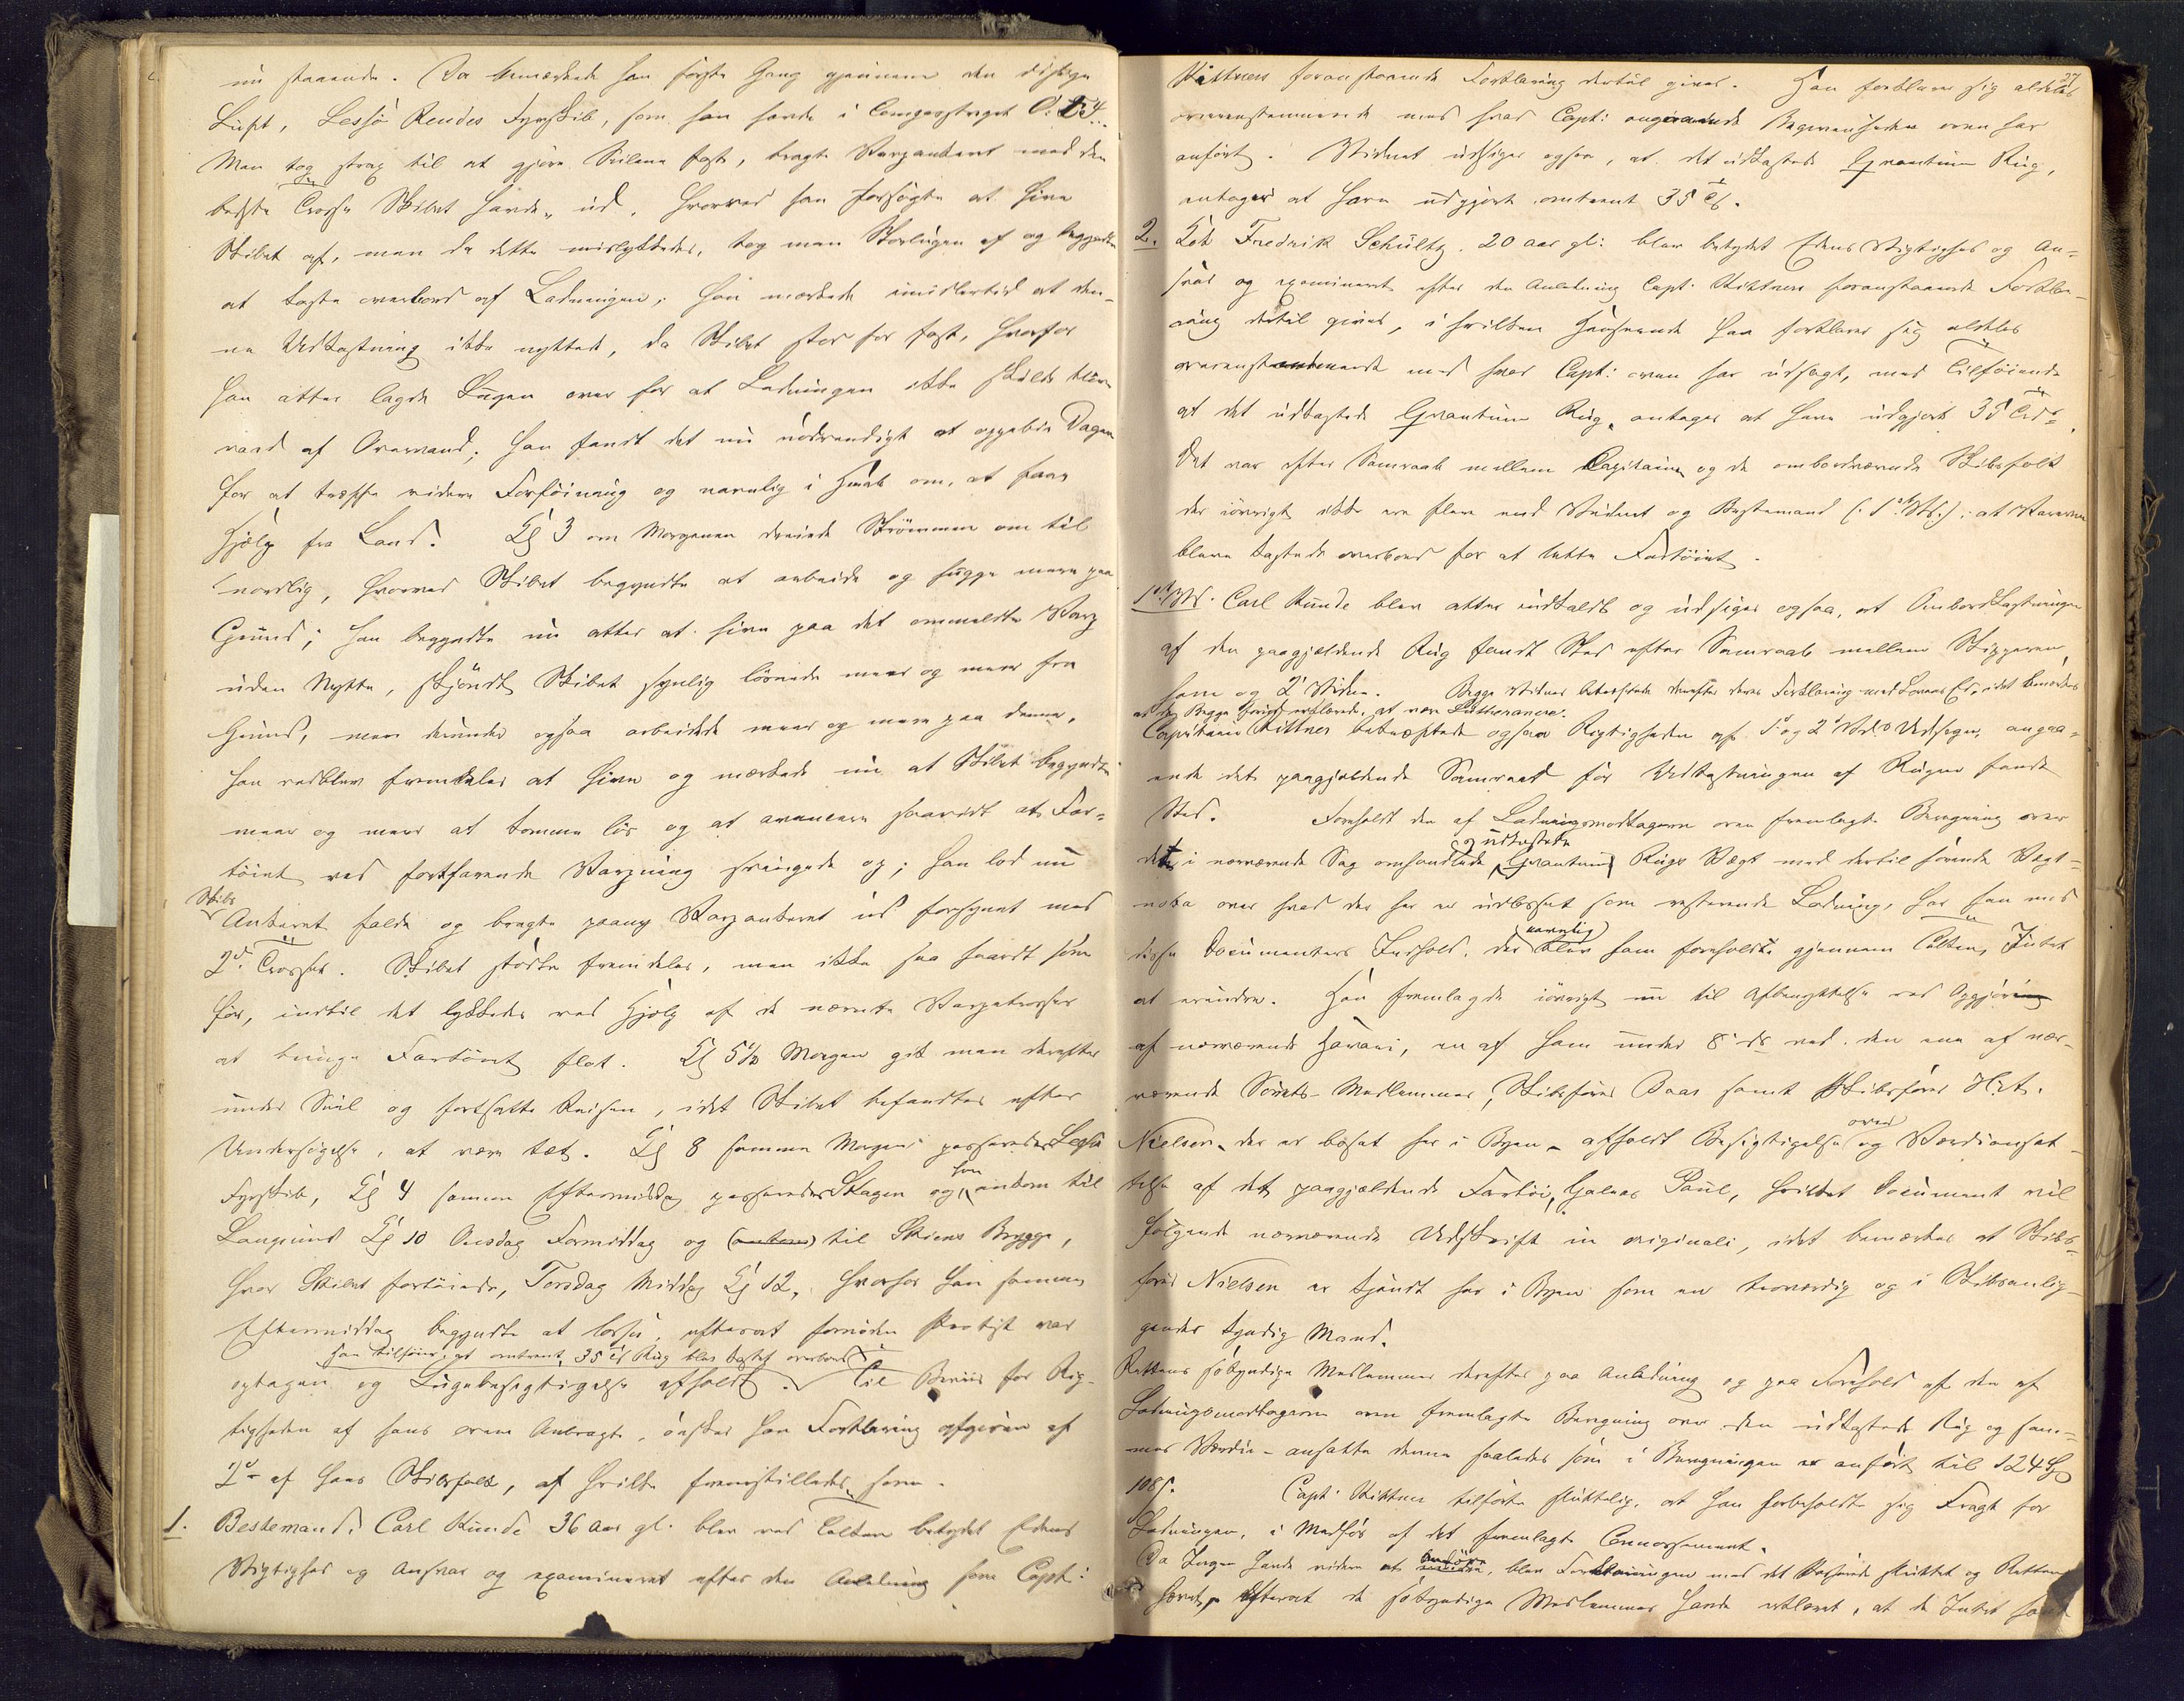 nu staaende. Da bemærkede han første Gang gjennem den disige
Luft, Lessø Rendes Fyrskib, som han havde i Compasstreget
Man tog strax til at gjøre Seilene fast, bragte Varpankeret med den
bedste Trosse Skibet havde, ud, hvorved han forsøgte at hive
Skibet af, men da dette mislykkedes, tog man Storlugen af og begyndte
at kaste overbord af Ladningen. Han mærkede imidlertid at den-
ne Udkastning ikke nyttede, da Skibet stod for fast, hvorfor
han atter lagde Lugen over for at Ladningen ikke skulde blive
vaad af Overvand; han fandt det nu nødvendigt at oppebie Dagen
for at træffe videre Forføining og navnlig i Haab om, at faae
Hjælp fra Land. Kl 3 om Morgenen dreiede Strømmen om til
nordlig, hvorved Skibet begyndte at arbeide og hugge mere paa
Grund; han begyndte nu atter at hive paa det ommeldte Varp
uden Nytte, skjøndt Skibet synlig løsnede meer og meer fra
Grund, men derunder ogsaa arbeidede meer og mere paa denne,
han vedblev fremdeles at hive og mærkede nu at Skibet begyndte
meer og meer at komme løs og at avancere saavidt at Far-
tøiet ved fortsarende Varpning svingede op; han lod nu
Skibs
Ankeret falde og bragte paany Varpankeret ud forsynet med
2de Trosser. Skibet stødte fremdeles, men ikke saa haardt som
før, indtil det lykkedes ved Hjælp af de nævnte Varpetrosser
at bringe Fartøiet flot. Kl 5½ Morgen gik man derefter
under Seil og fortsatte Reisen, idet Skibet befandtes efter
Undersøgelse, at være tæt. Kl 8 samme Morgen passeredes Lessø
Fyrskib, Kl 4 samme Eftermiddag passeredes Skagen og han ankom til
Langesund Kl 10 Onsdag Formiddag og (ankom) til Skiens Brygge,
hvor Skibet fortøiede, Torsdag Middag Kl 12, hvorfor han samme
Eftermiddag begyndte at losse, efterat fornøden Protest var
Han tilføier, at omtrent 35 Tdr Rug blev kastet overbord
optagen og Lugebesigtigelse afholdt. Til Beviis for Rig-
tigheden af hans ovenanbragte, ønsker han Forklaring afgiven af
2de af hans Skibsfolk, af hvilke fremstilledes som
1. Bestemand, Carl Kunde 36 Aar gl. blev ved Tolken betydet Edens
Vigtighed og Ansvar og examineret efter den Anledning som Capt:
27
Kittners foranstaaende Forklaring dertil giver. Han forklarer sig aldeles
overensstemmende med hvad Capt: angivende Begivenheden oven har
anført. Vidnet udsiger ogsaa, at det udkastede Qvantum Rug,
antages at have udgjort omtrent 35 Tdr.
2. Kok Fredrik Schultz, 20 aar gl: blev betydet Edens Vigtighed og An-
svar og examineret efter den Anledning Capt. Kittners foranstaaende Forkla-
ring dertil giver, i hvilken Henseende han forklarer sig aldeles
overensstemmende med hvad Capt: oven har udsagt, med Tilføiende
at det udkastede Qvantum Rug, antages at have udgjort 35 Tdr.
Det var efter Samraad mellem Capitainen og de ombordværende Skibsfolk
der iøvrigt ikke ere flere end Vidnet og Bestemand (: 1ste Vd. :) at Varerne
bleve kastede overbord for at lette Fartøiet.
1ste Vd. Carl Kunde blev atter indkaldt og udsiger ogsaa, at Overbordkastningen
af den paagjældende Rug fandt Sted efter Samraad mellem Skipperen,
ham og 2det Vidne. Begge Vidner bekræftede derefter deres Forklaring med Lovens Ed, idet bemærkes
at de Begge forud erklærede, at være Lutheranere.
Capitain Kittner bekræftede ogsaa Rigtigheden af 1ste og 2det Vd.s Udsagn, angaa-
ende det paagjældende Samraad før Udkastningen af Rugen fandt
Sted. Foreholdt den af Ladningsmodtageren oven fremlagte Beregning over
og udkastede
det i nærværende Sag omhandlede Qvantum Rugs Vægt med dertil hørende Vægt-
nota over hvad der her er udlosset som resterende Ladning, har han mod
navnlig
disse Documenters Indhold, der blev ham foreholdt gjennem Tolken, Intet
at erindre. Han fremlagde iøvrigt nu til Afbenyttelse ved Opgjøring
af nærværende Havari, en af ham under 8de ds ved den ene af nær-
værende Søretts-Medlemmer, Skibsfører Baas samt Skibsfører
over
Nielsen, der er bosat her i Byen, afholdt Besigtigelse og Værdiansæt-
telse af det paagjældende Fartøi, Galeas Paul, hvilket Document vil
følgende nærværende Udskrift in originali, idet bemærkes at Skibs-
fører Nielsen er kjendt her i Byen som en troværdig og i Skibsanlig-
gender kyndig Mand.
Rettens søkyndige Medlemmer derefter paa Anledning og paa Forehold af den af
Ladningsmodtageren oven fremlagte Beregning over den udkastede Rug og sam-
mes Værdie - ansatte denne saaledes som i Beregningen er anført til 124 Spd
108 s. Capt. Kittner tilførte sluttelig, at han forbeholdt sig Fragt for
Ladningen, i Medfør af det fremlagte Connossement.
Da Ingen havde videre at anføre, blev Forklaringen med det Passerede sluttet og Retten
hævet, efterat de søkyndige Medlemmer havde erklæret, at de Intet havde